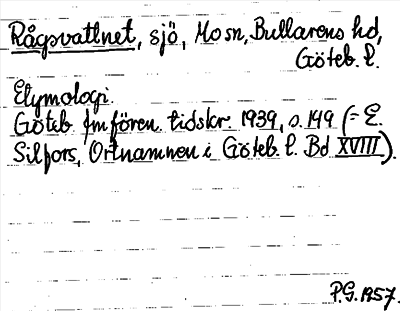 Rågsvattnet, sjö, Mo sn, Bullarens hd,
Göteb. l.
Etymologi.
Göteb fmfören. tidskr. 1939, s. 149 (= E.
Silfors, Ortnamnen i Göteb. l. Bd XVIII).
P.G. 1957.